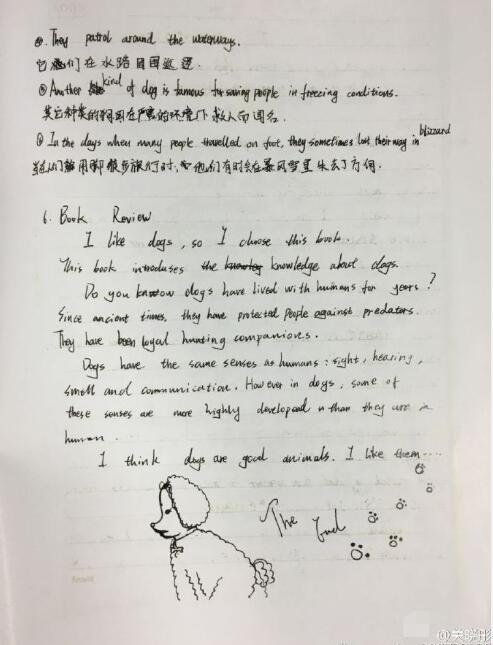 ⊕. They patrol around the waterways.
它们在水路周围巡逻
⊕ Another kind of dog is famous for saving people in freezing conditions.
其它种类的狗因在严寒的环境下救人而闻名.
⊕ In the days when many people travelled on foot, they sometimes lost their way in blizzard
当人们用脚步旅行时, 他们有时会在暴风雪里失去了方向.
6. Book Review
I like dogs, so I choose this book.
This book introduses the knowledge about dogs.
Do you know dogs have lived with humans for years?
Since ancient times, they have protected people against predators.
They have been loyal hunting companions.
Dogs have the same senses as humans: sight, hearing,
smell and communication. However in dogs, some of
these senses are more highly developed than they are in
human.
I think dogs are good animals. I like them....
The End
@关晓彤